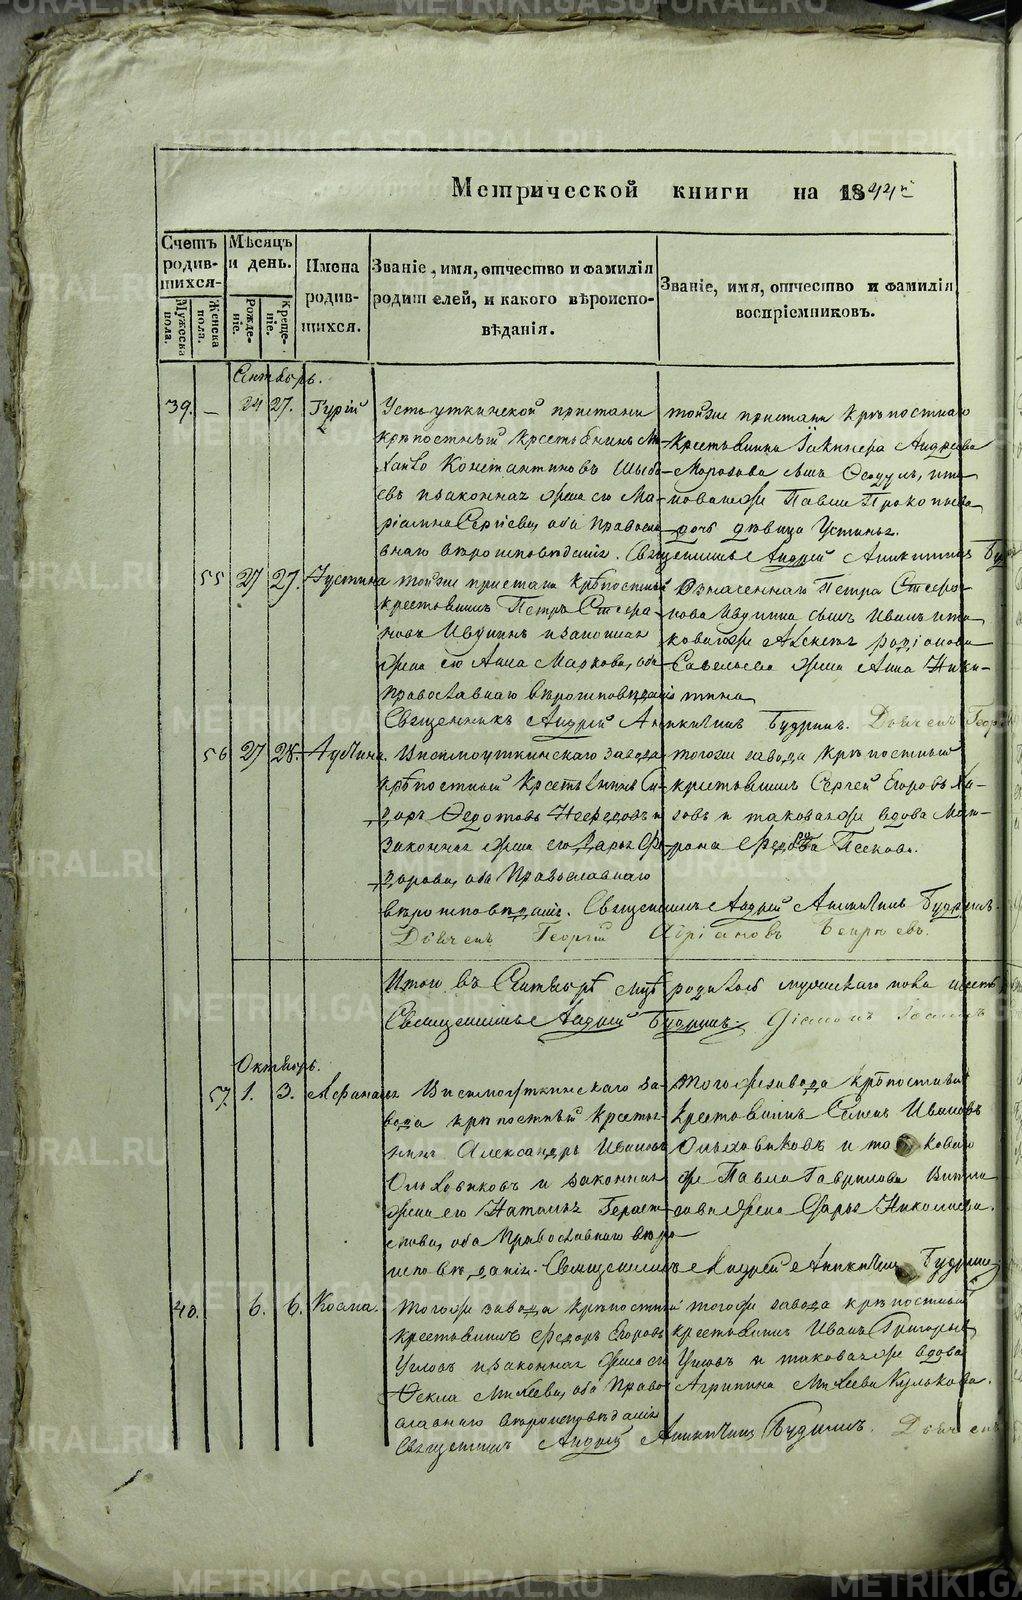 METRIKI.GASO-URAL.RU
Метрической книги на 1844й
Счетъ родив-шихся.
Мужеска пола.
Женска пола.
Мѣсяцъ и день.
Рожде-ніе.
Креще-ніе.
Имена родив-шихся.
Званіе, имя, отчество и фамилія родителей, и какого вѣроиспо-вѣданія.
Званіе, имя, отчество и фамилія воспріемниковъ.
Сентябрь.
39. — 24 27. Гурій
Устьуткинской пристани
крѣпостный крестьянинъ Ми-
хайло Константиновъ
евъ и законная жена его Ма-
Сергіева, оба правосла-
внаго вѣроисповѣданія.
тойже пристани крѣпостнаго
крестьянина Андреева
Морозова сынъ и та-
коваяже Павла Прокопьева
дочь дѣвица Устинья.
Священникъ Андрей Аникитинъ
55 27 27. Іустина
тойже пристани крѣпостный
крестьянинъ Петръ Стефа-
новъ и законная
жена его Анна Маркова, оба
православнаго вѣроисповѣданія
означеннаго Петра Стефа-
нова сынъ Иванъ и та-
коваяже Родіонова
Савельева жена Анна Ники-
тина
Священникъ Андрей Аникитинъ Будринъ. Дьяченъ Георг
56 27 28. Акулина.
Висимоуткинскаго завода
крѣпостный крестьянинъ Си-
доръ Федотовъ Нефедовъ и
законная жена его Дарья Фе-
дорова, оба Православнаго
вѣроисповѣданія.
тогоже завода крѣпостный
крестьянинъ Сергей Егоровъ
и таковаяже вдова Мат-
рона Пескова.
Священникъ Андрей Аникитинъ Будринъ.
Дьяченъ Георгій
Итого въ Сентябрѣ мцѣ родилось мужескаго пола шесть
Священникъ Андрей Будринъ.
Октябрь.
57. 1. 3. Афанасья
Висимоуткинскаго за-
вода крѣпостный крестья-
нинъ Александръ Ивановъ
Ольховиковъ и законная
жена его Наталья Гераси-
мова, оба Православнаго вѣро-
исповѣданія.
тогоже завода крѣпостный
крестьянинъ Семенъ Ивановъ
Ольховиковъ и таковаяже
Павла Гаврилова
жена Дарья Николаева.
Священникъ Андрей Аникитинъ Будринъ
40. 6. 6. Козма.
Тогоже завода крѣпостный
крестьянинъ Федоръ Егоровъ
Угловъ и законная жена его
Фекла Михеева, оба Право-
славнаго вѣроисповѣданія
тогоже завода крѣпостный
крестьянинъ Иванъ Григорьевъ
Угловъ и таковаяже вдова
Агрипина Михеева Кулькова.
Священникъ Андрей Аникитинъ Будринъ. Дьяченъ